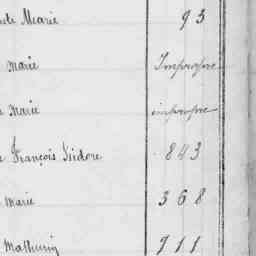 Marie 93
Marie Impropre
Marie impropre
François Isidore 843
Marie 368
Mathurin 711